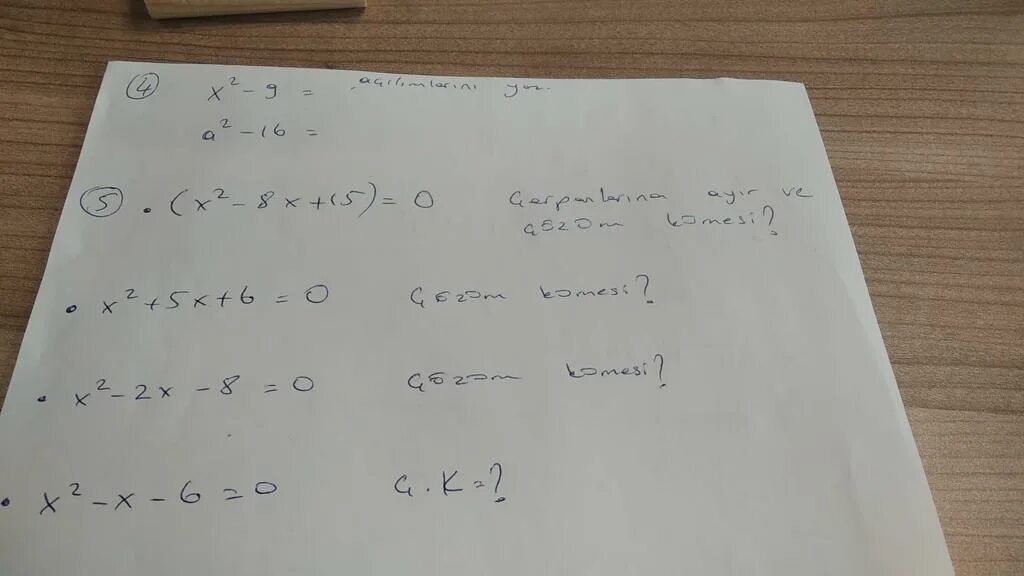 4 x² - 9 = açılımlarını yaz.
a² - 16 =
5 • (x² - 8x + 15) = 0 Çarpanlarına ayır ve
çözüm kümesi?
• x² + 5x + 6 = 0 Çözüm kümesi?
• x² - 2x - 8 = 0 Çözüm kümesi?
• x² - x - 6 = 0 Ç.K = ?